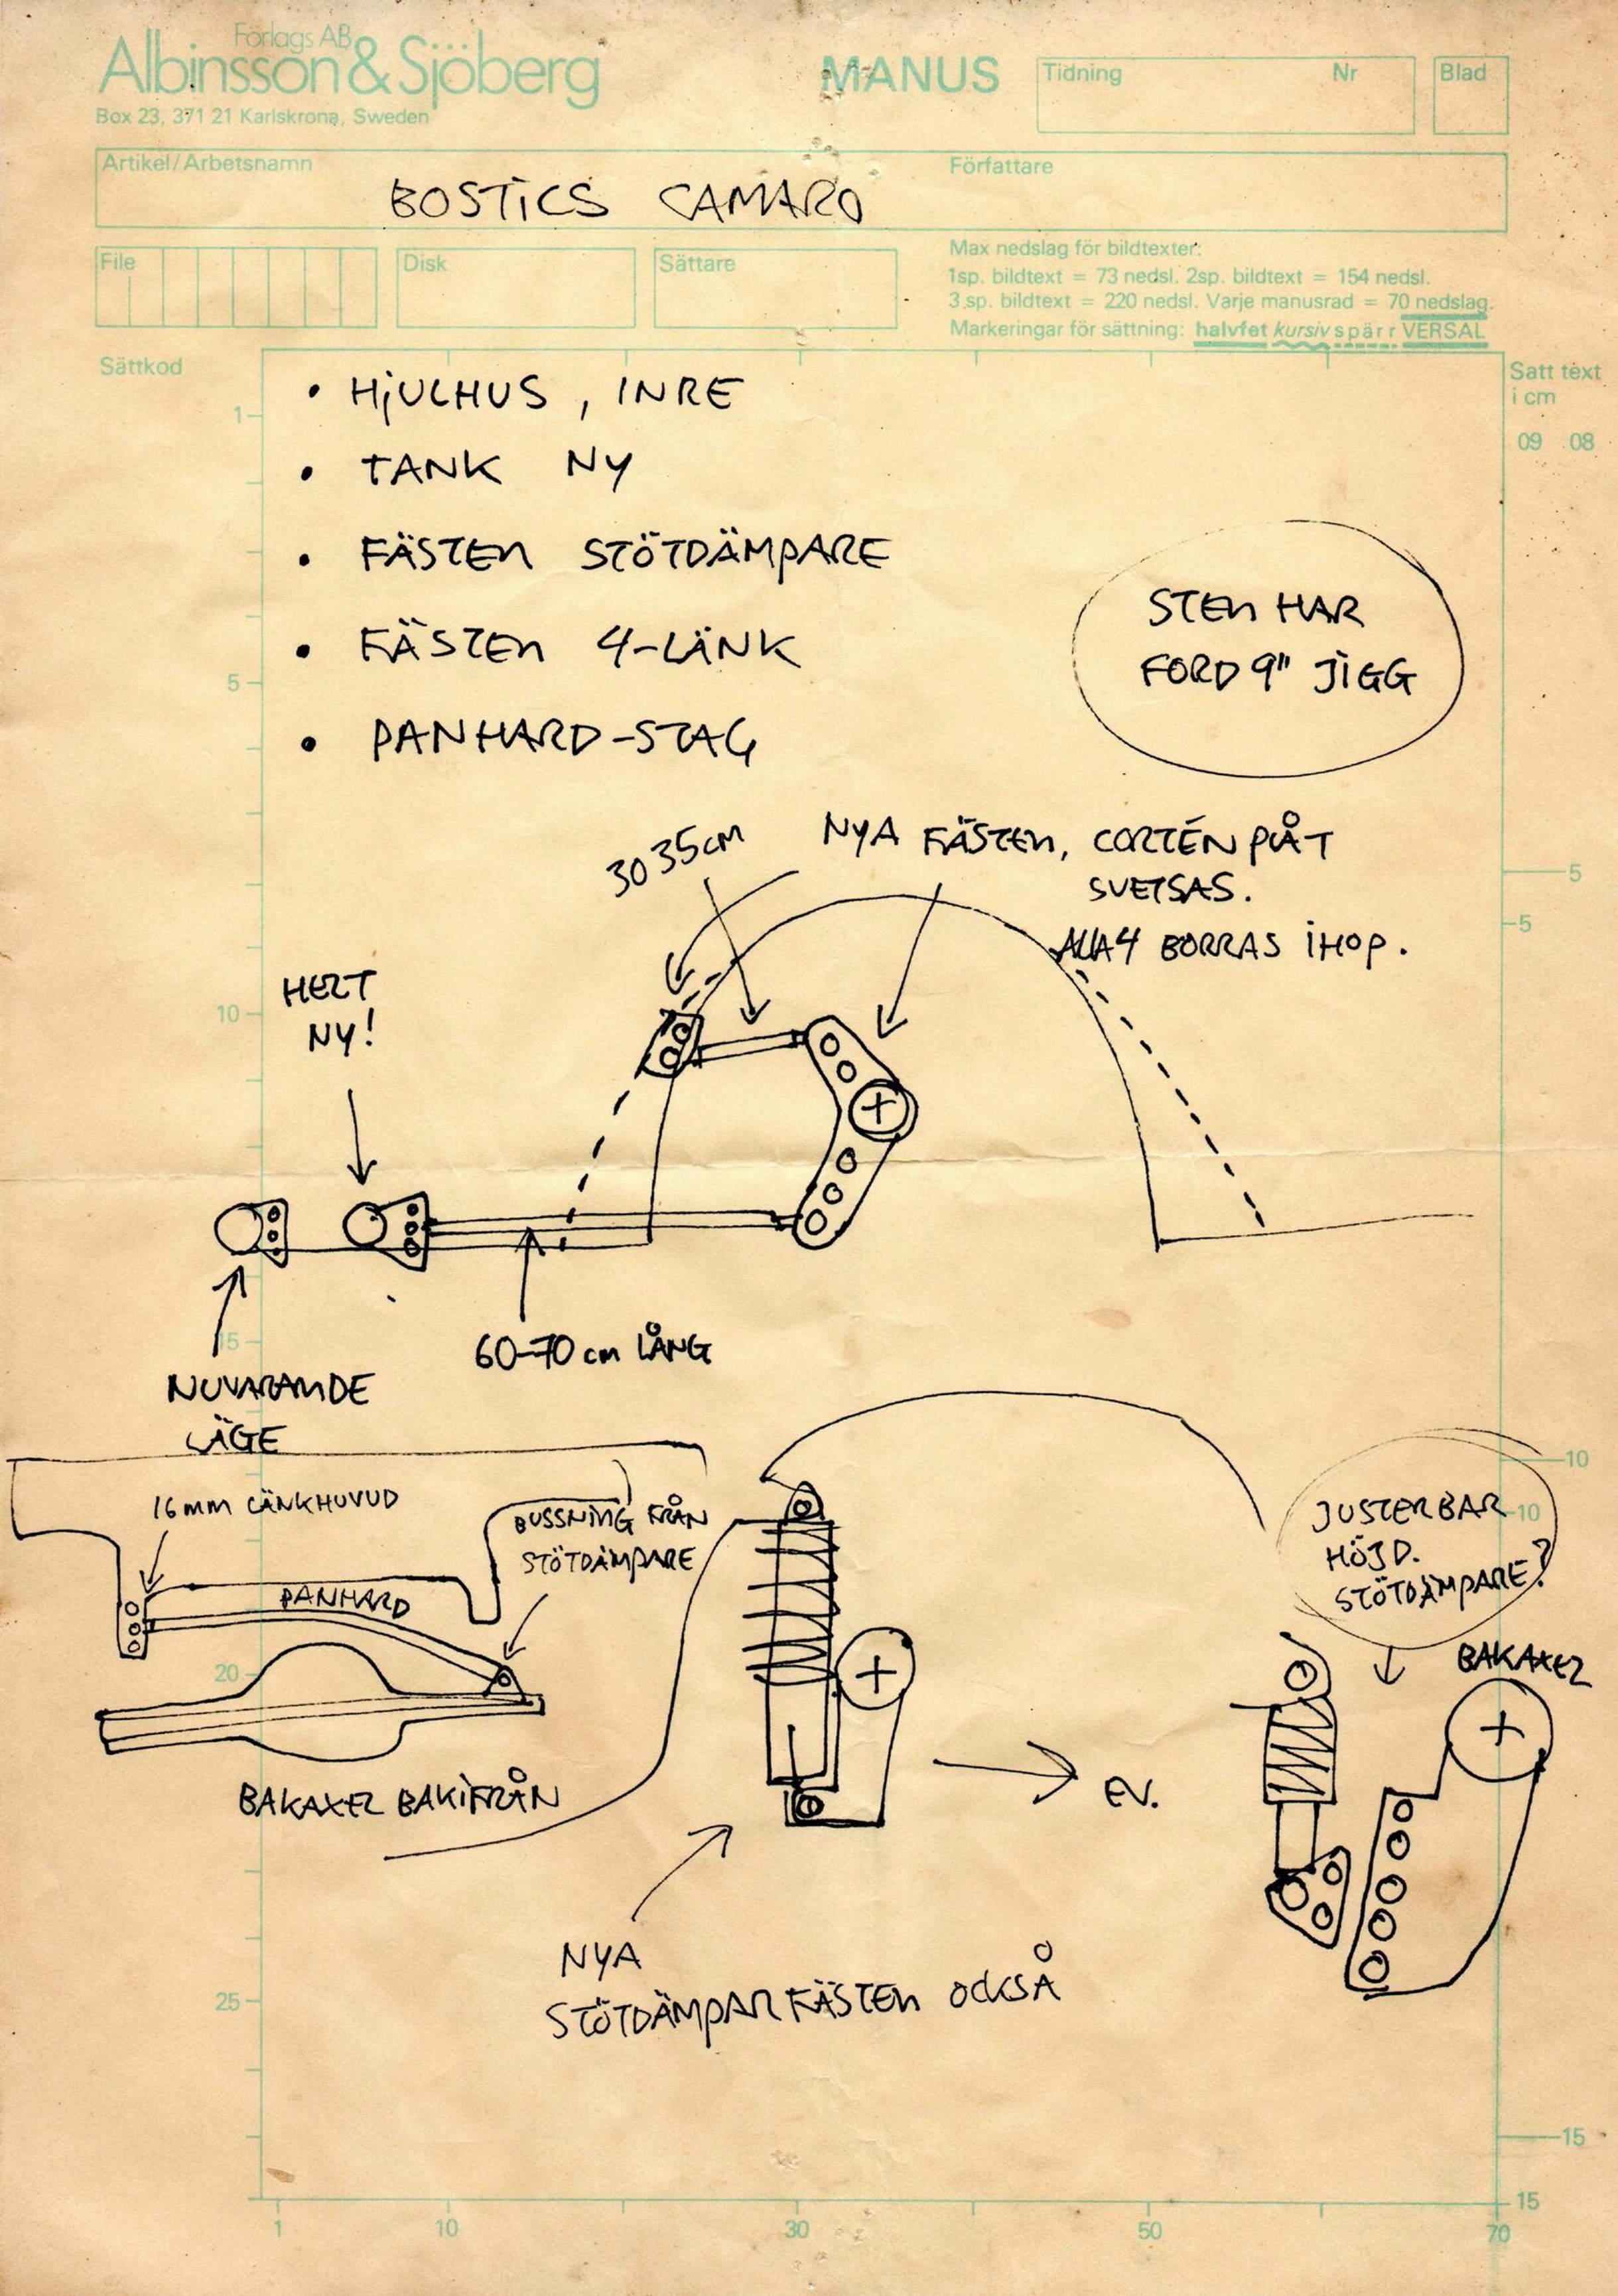 Förlags AB
Albinsson & Sjöberg
Box 23, 371 21 Karlskrona, Sweden
MANUS
Tidning Nr
Blad
Artikel/Arbetsnamn
BOSTICS CAMARO
Författare
File
Disk
Sättare
Max nedslag för bildtexter:
1sp. bildtext = 73 nedsl. 2sp. bildtext = 154 nedsl.
3.sp. bildtext = 220 nedsl. Varje manusrad = 70 nedslag.
Markeringar för sättning: halvfet kursiv spärr VERSAL
Sättkod
Satt text
i cm
09 08
• HJULHUS, INRE
• TANK NY
• FÄSTEN STÖTDÄMPARE
• FÄSTEN 4-LÄNK
• PANHARD-STAG
STEN HAR
FORD 9" JIGG
30 35 CM
NYA FÄSTEN, CORTÉN PLÅT
SVETSAS.
ALLA 4 BORRAS IHOP.
HELT
NY!
60-70 cm LÅNG
NUVARANDE
LÄGE
16 mm LÄNKHUVUD
BUSSNING FRÅN
STÖTDÄMPARE
PANHARD
BAKAXEL BAKIFRÅN
JUSTERBAR
HÖJD.
STÖTDÄMPARE?
BAKAXEL
EV.
NYA
STÖTDÄMPARFÄSTEN OCKSÅ
1
5
10
15
20
25
5
5
10
10
15
15
1
10
30
50
70